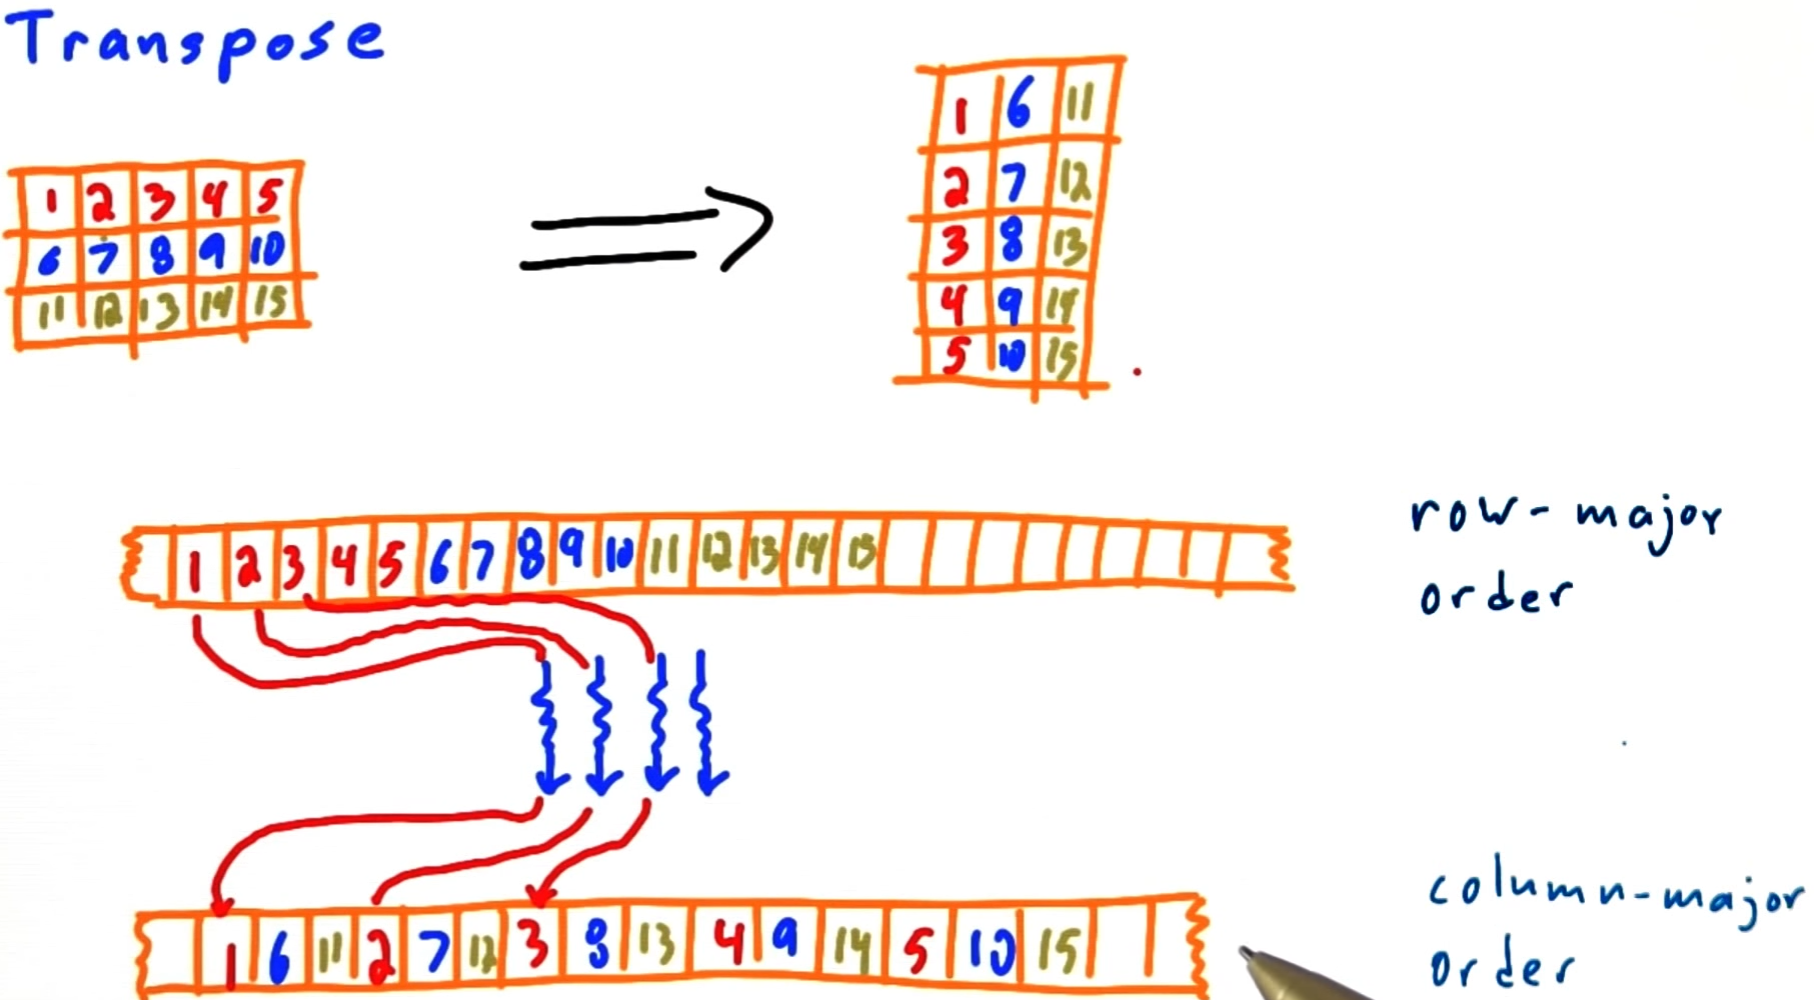 Transpose
1 2 3 4 5
6 7 8 9 10
11 12 13 14 15
1 6 11
2 7 12
3 8 13
4 9 14
5 10 15
1 2 3 4 5 6 7 8 9 10 11 12 13 14 15
row-major
order
1 6 11 2 7 12 3 8 13 4 9 14 5 10 15
column-major
order